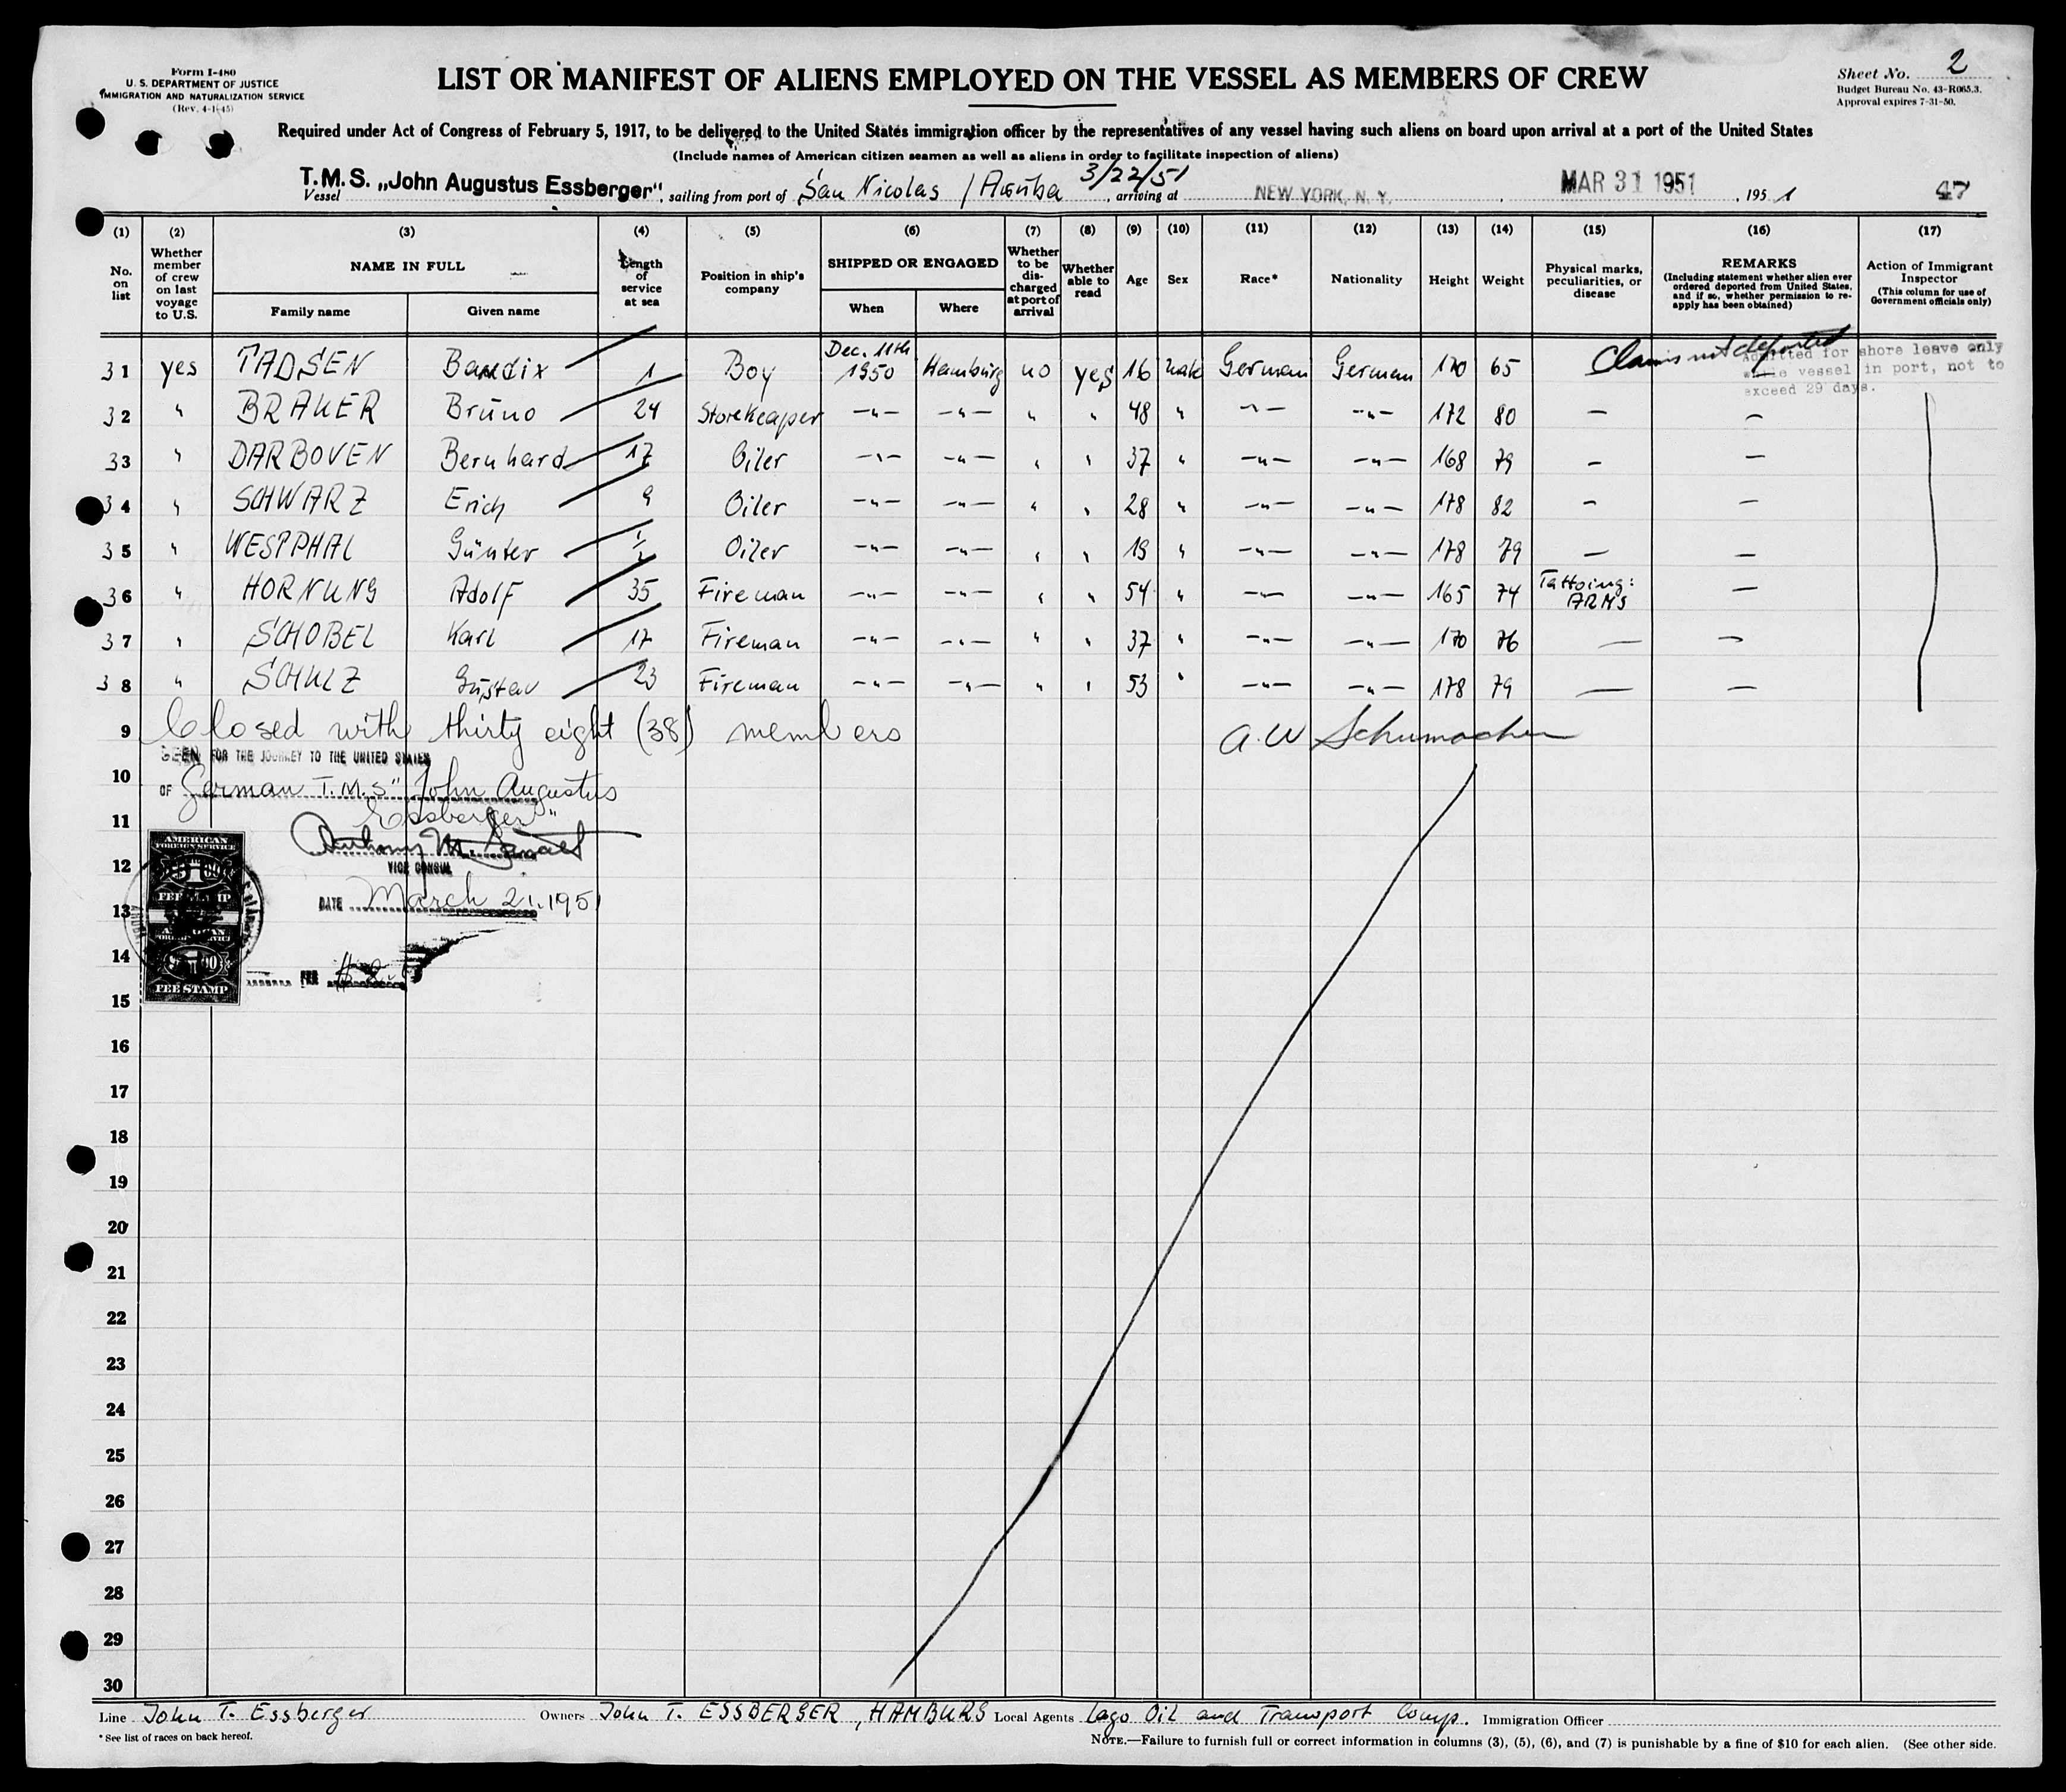 Form I-480
U. S. DEPARTMENT OF JUSTICE
IMMIGRATION AND NATURALIZATION SERVICE
(Rev. 4-1-45)
LIST OR MANIFEST OF ALIENS EMPLOYED ON THE VESSEL AS MEMBERS OF CREW
Sheet No. 2
Budget Bureau No. 43-R065.3.
Approval expires 7-31-50.
Required under Act of Congress of February 5, 1917, to be delivered to the United States immigration officer by the representatives of any vessel having such aliens on board upon arrival at a port of the United States
(Include names of American citizen seamen as well as aliens in order to facilitate inspection of aliens)
Vessel T.M.S. „John Augustus Essberger", sailing from port of San Nicolas / Aruba 3/22/51, arriving at NEW YORK, N. Y., MAR 31 1951, 1951 47
(1) (2) (3) (4) (5) (6) (7) (8) (9) (10) (11) (12) (13) (14) (15) (16) (17)
No. on list
Whether member of crew on last voyage to U.S.
NAME IN FULL
Family name Given name
Length of service at sea
Position in ship's company
SHIPPED OR ENGAGED
When Where
Whether to be discharged at port of arrival
Whether able to read
Age
Sex
Race*
Nationality
Height
Weight
Physical marks, peculiarities, or disease
REMARKS
(Including statement whether alien ever ordered deported from United States, and if so, whether permission to reapply has been obtained)
Action of Immigrant Inspector
(This column for use of Government officials only)
Claims not deported
Admitted for shore leave only
while vessel in port, not to
exceed 29 days.
31 yes TADSEN Bendix 1 Boy Dec. 11th 1950 Hamburg no yes 16 male German German 170 65
32 " BRAUER Bruno 24 Storekeaper —"— —"— " " 48 " —"— —"— 172 80 — —
33 " DARBOVEN Bernhard 17 Oiler —"— —"— " " 37 " —"— —"— 168 79 — —
34 " SCHWARZ Erich 9 Oiler —"— —"— " " 28 " —"— —"— 178 82 — —
35 " WESTPHAL Günter ½ Oiler —"— —"— " " 19 " —"— —"— 178 79 — —
36 " HORNUNG Adolf 35 Fireman —"— —"— " " 54 " —"— —"— 165 74 Tattoing: ARMS —
37 " SCHOBEL Karl 17 Fireman —"— —"— " " 37 " —"— —"— 170 76 — —
38 " SCHULZ Gustav 23 Fireman —"— —"— " " 53 " —"— —"— 178 79 — —
9 Closed with thirty eight (38) members A. W. Schumacher
SEEN FOR THE JOURNEY TO THE UNITED STATES
10 OF German T.M.S "John Augustus
11 Essberger"
Anthony M.
VICE CONSUL
12
DATE March 21. 1951
13
14
FEE
15
AMERICAN
FOREIGN SERVICE
FEE STAMP
AMERICAN
FOREIGN SERVICE
FEE STAMP
16
17
18
19
20
21
22
23
24
25
26
27
28
29
30
Line John T. Essberger Owners John T. ESSBERGER, HAMBURG Local Agents Lago Oil and Transport Comp. Immigration Officer
* See list of races on back hereof.
NOTE.—Failure to furnish full or correct information in columns (3), (5), (6), and (7) is punishable by a fine of $10 for each alien. (See other side.